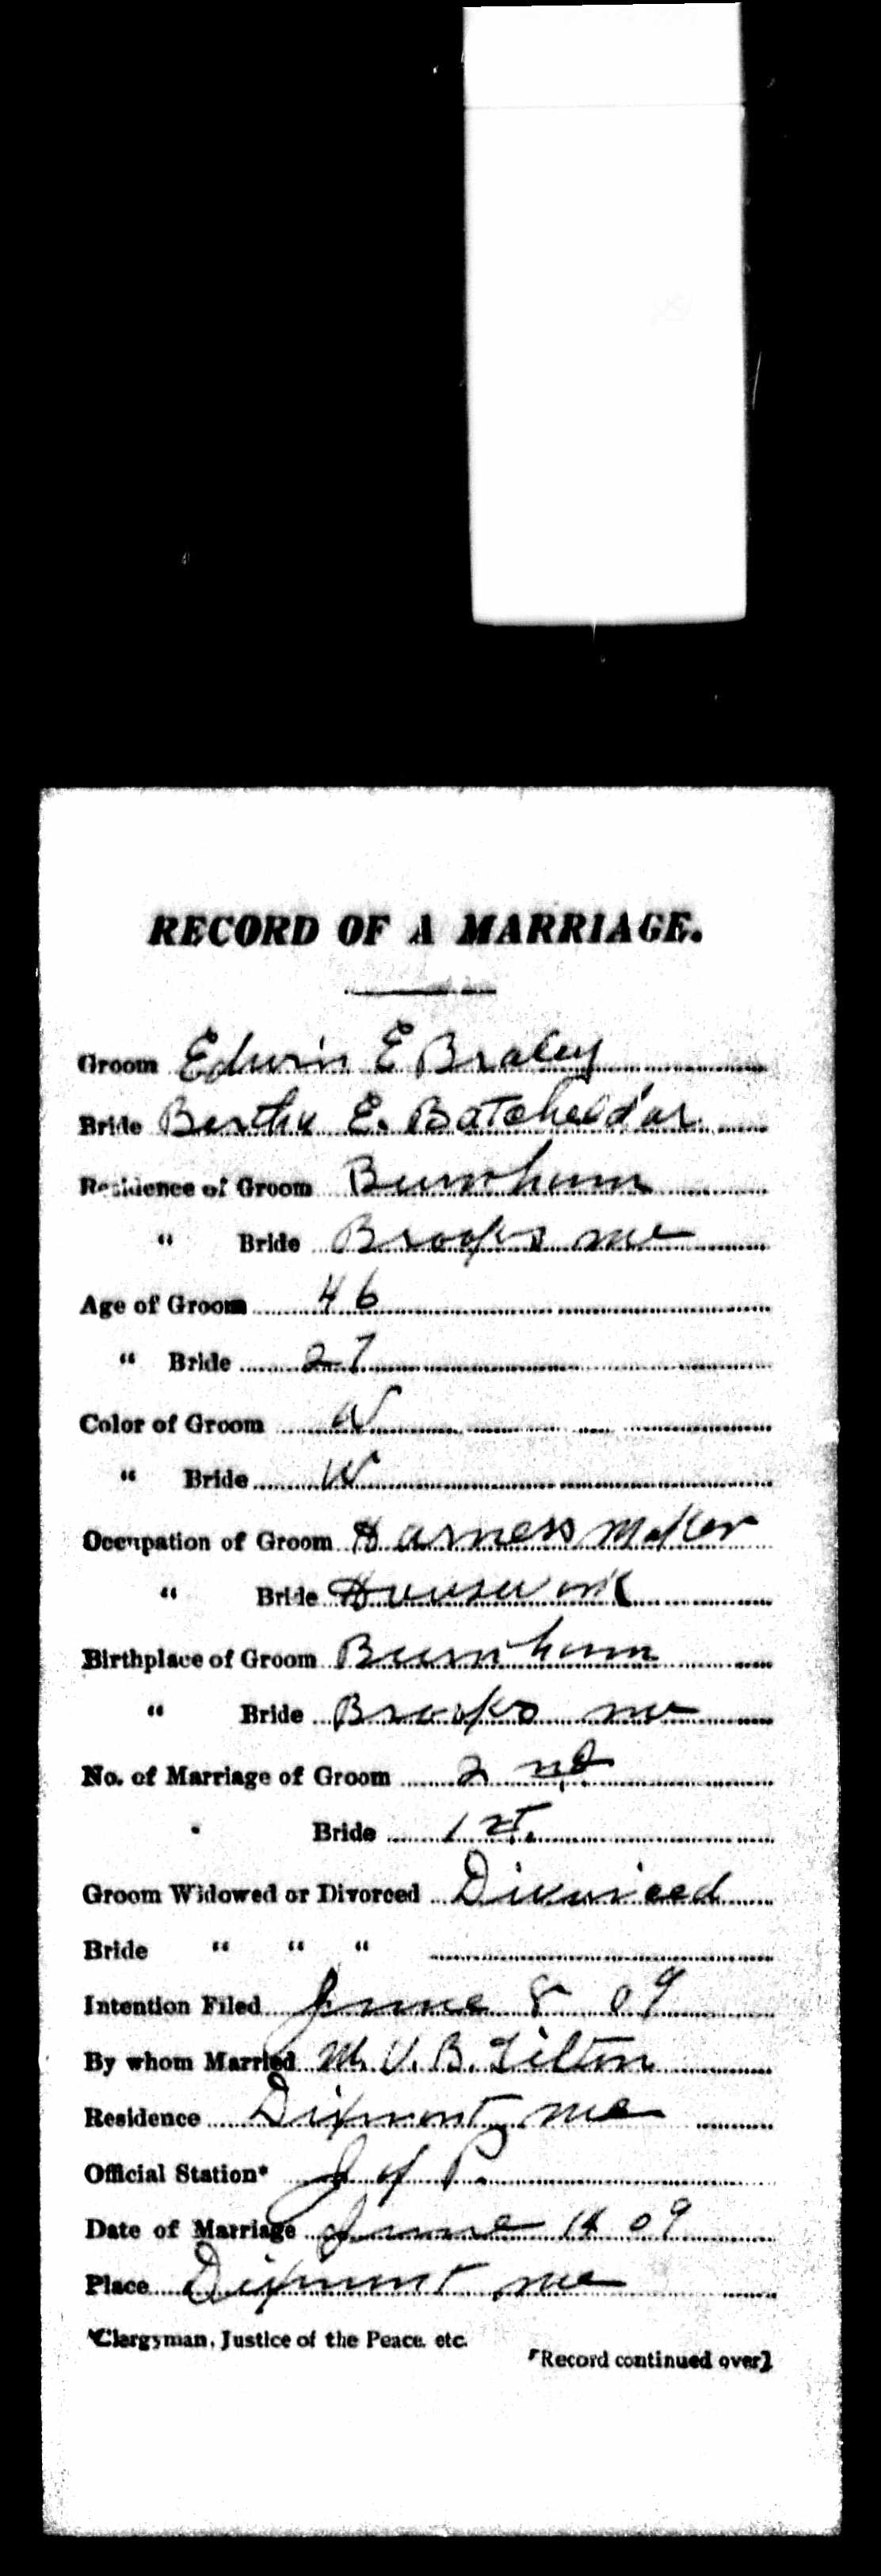 RECORD OF A MARRIAGE.
Groom Edwin E Braley
Bride Bertha E. Batcheldar
Residence of Groom Burnham
" Bride Brooks me
Age of Groom 46
" Bride 27
Color of Groom W
" Bride W
Occupation of Groom Harness Maker
" Bride Housework
Birthplace of Groom Burnham
" Bride Brooks me
No. of Marriage of Groom 2 nd
" Bride 1 st.
Groom Widowed or Divorced Divorced
Bride " " "
Intention Filed June 8 09
By whom Married M. V. B. Tilton
Residence Dixmont me
Official Station* J of P.
Date of Marriage June 14 09
Place Dixmont me
*Clergyman, Justice of the Peace. etc.
[Record continued over]